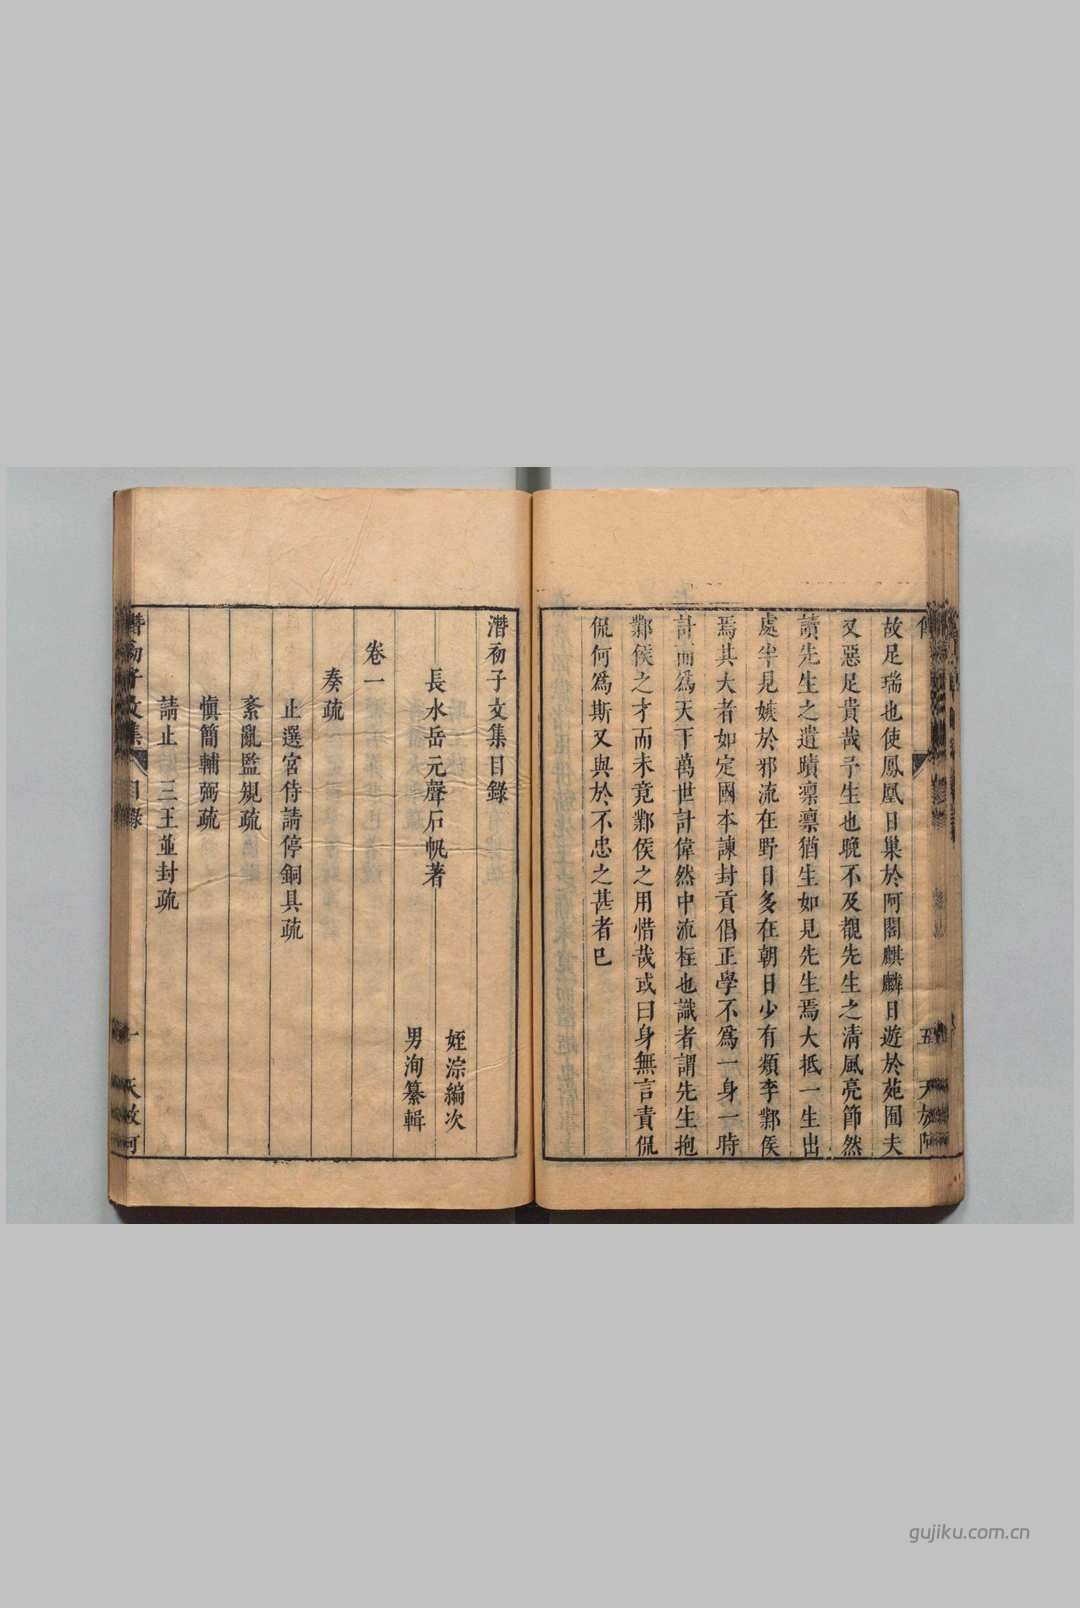 故足瑞也使鳳凰日巢於阿閣麒麟日遊於苑囿夫
又惡足貴哉予生也晚不及覩先生之清風亮節然
讀先生之遺蹟凛凛猶生如見先生焉大抵一生出
處半見嫉於邪流在野日多在朝日少有類李鄴侯
焉其大者如定國本諫封貢倡正學不為一身一時
計而為天下萬世計偉然中流柱也識者謂先生抱
鄴侯之才而未竟鄴侯之用惜哉或曰身無言責侃
侃何為斯又與於不忠之甚者已
五
潛初子文集目錄
長水岳元聲石帆著
姪淙編次
男洵纂輯
卷一
奏疏
止選宮侍請停銅具疏
紊亂監規疏
慎簡輔弼疏
請止三王並封疏
潛初子文集
目錄
一
gujiku.com.cn